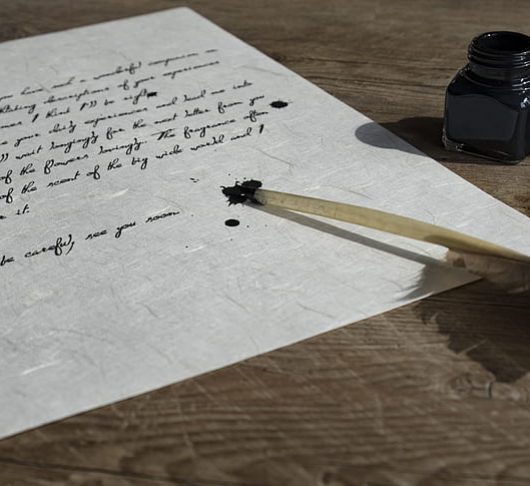 you have such a wonderful companion on
descriptions of your experiences
I think I'll be right
your daily experiences and lead me into
I'll wait longingly for the next letter from you
of the flowers longingly. The fragrance of an
of the scent of the big wide world and I
it.
be careful, see you soon